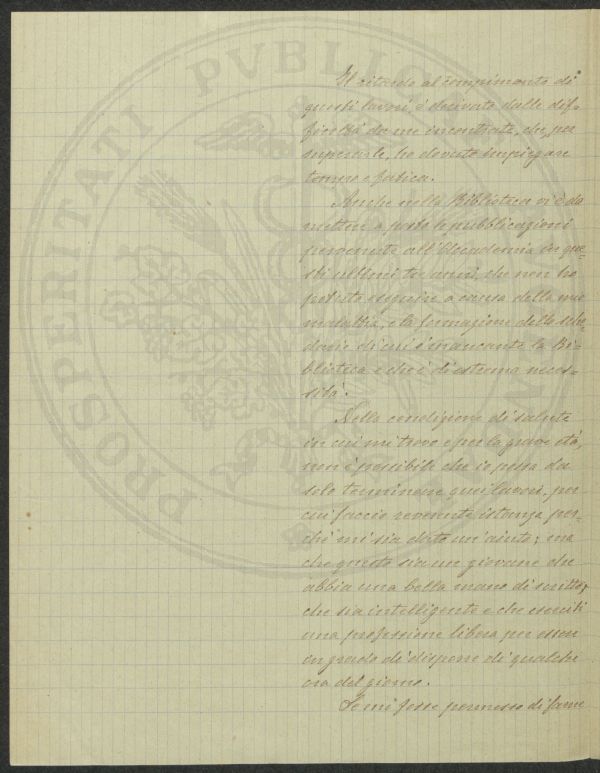 PROSPERITATI PUBLICAE
Il ritardo al compimento di
questi lavori è derivato dalle dif-
ficoltà da me incontrate, che, per
superarle, ho dovuto impiegare
tempo e fatica.
Anche nella Biblioteca vi è da
mettere a posto le pubblicazioni
pervenute all'Accademia in que-
sti ultimi tre anni, che non ho
potuto eseguire a causa della mia
malattia, e la formazione dello sche-
dario di cui è mancante la Bi-
blioteca e che è di estrema neces-
sità.
Nella condizione di salute
in cui mi trovo e per la grave età,
non è possibile che io possa da
solo terminare quei lavori, per
cui faccio reverente istanza per-
chè mi sia dato un aiuto; ma
che questo sia un giovane che
abbia una bella mano di scritto,
che sia intelligente e che eserciti
una professione libera per essere
in grado di disporre di qualche
ora del giorno.
Se mi fosse permesso di farne